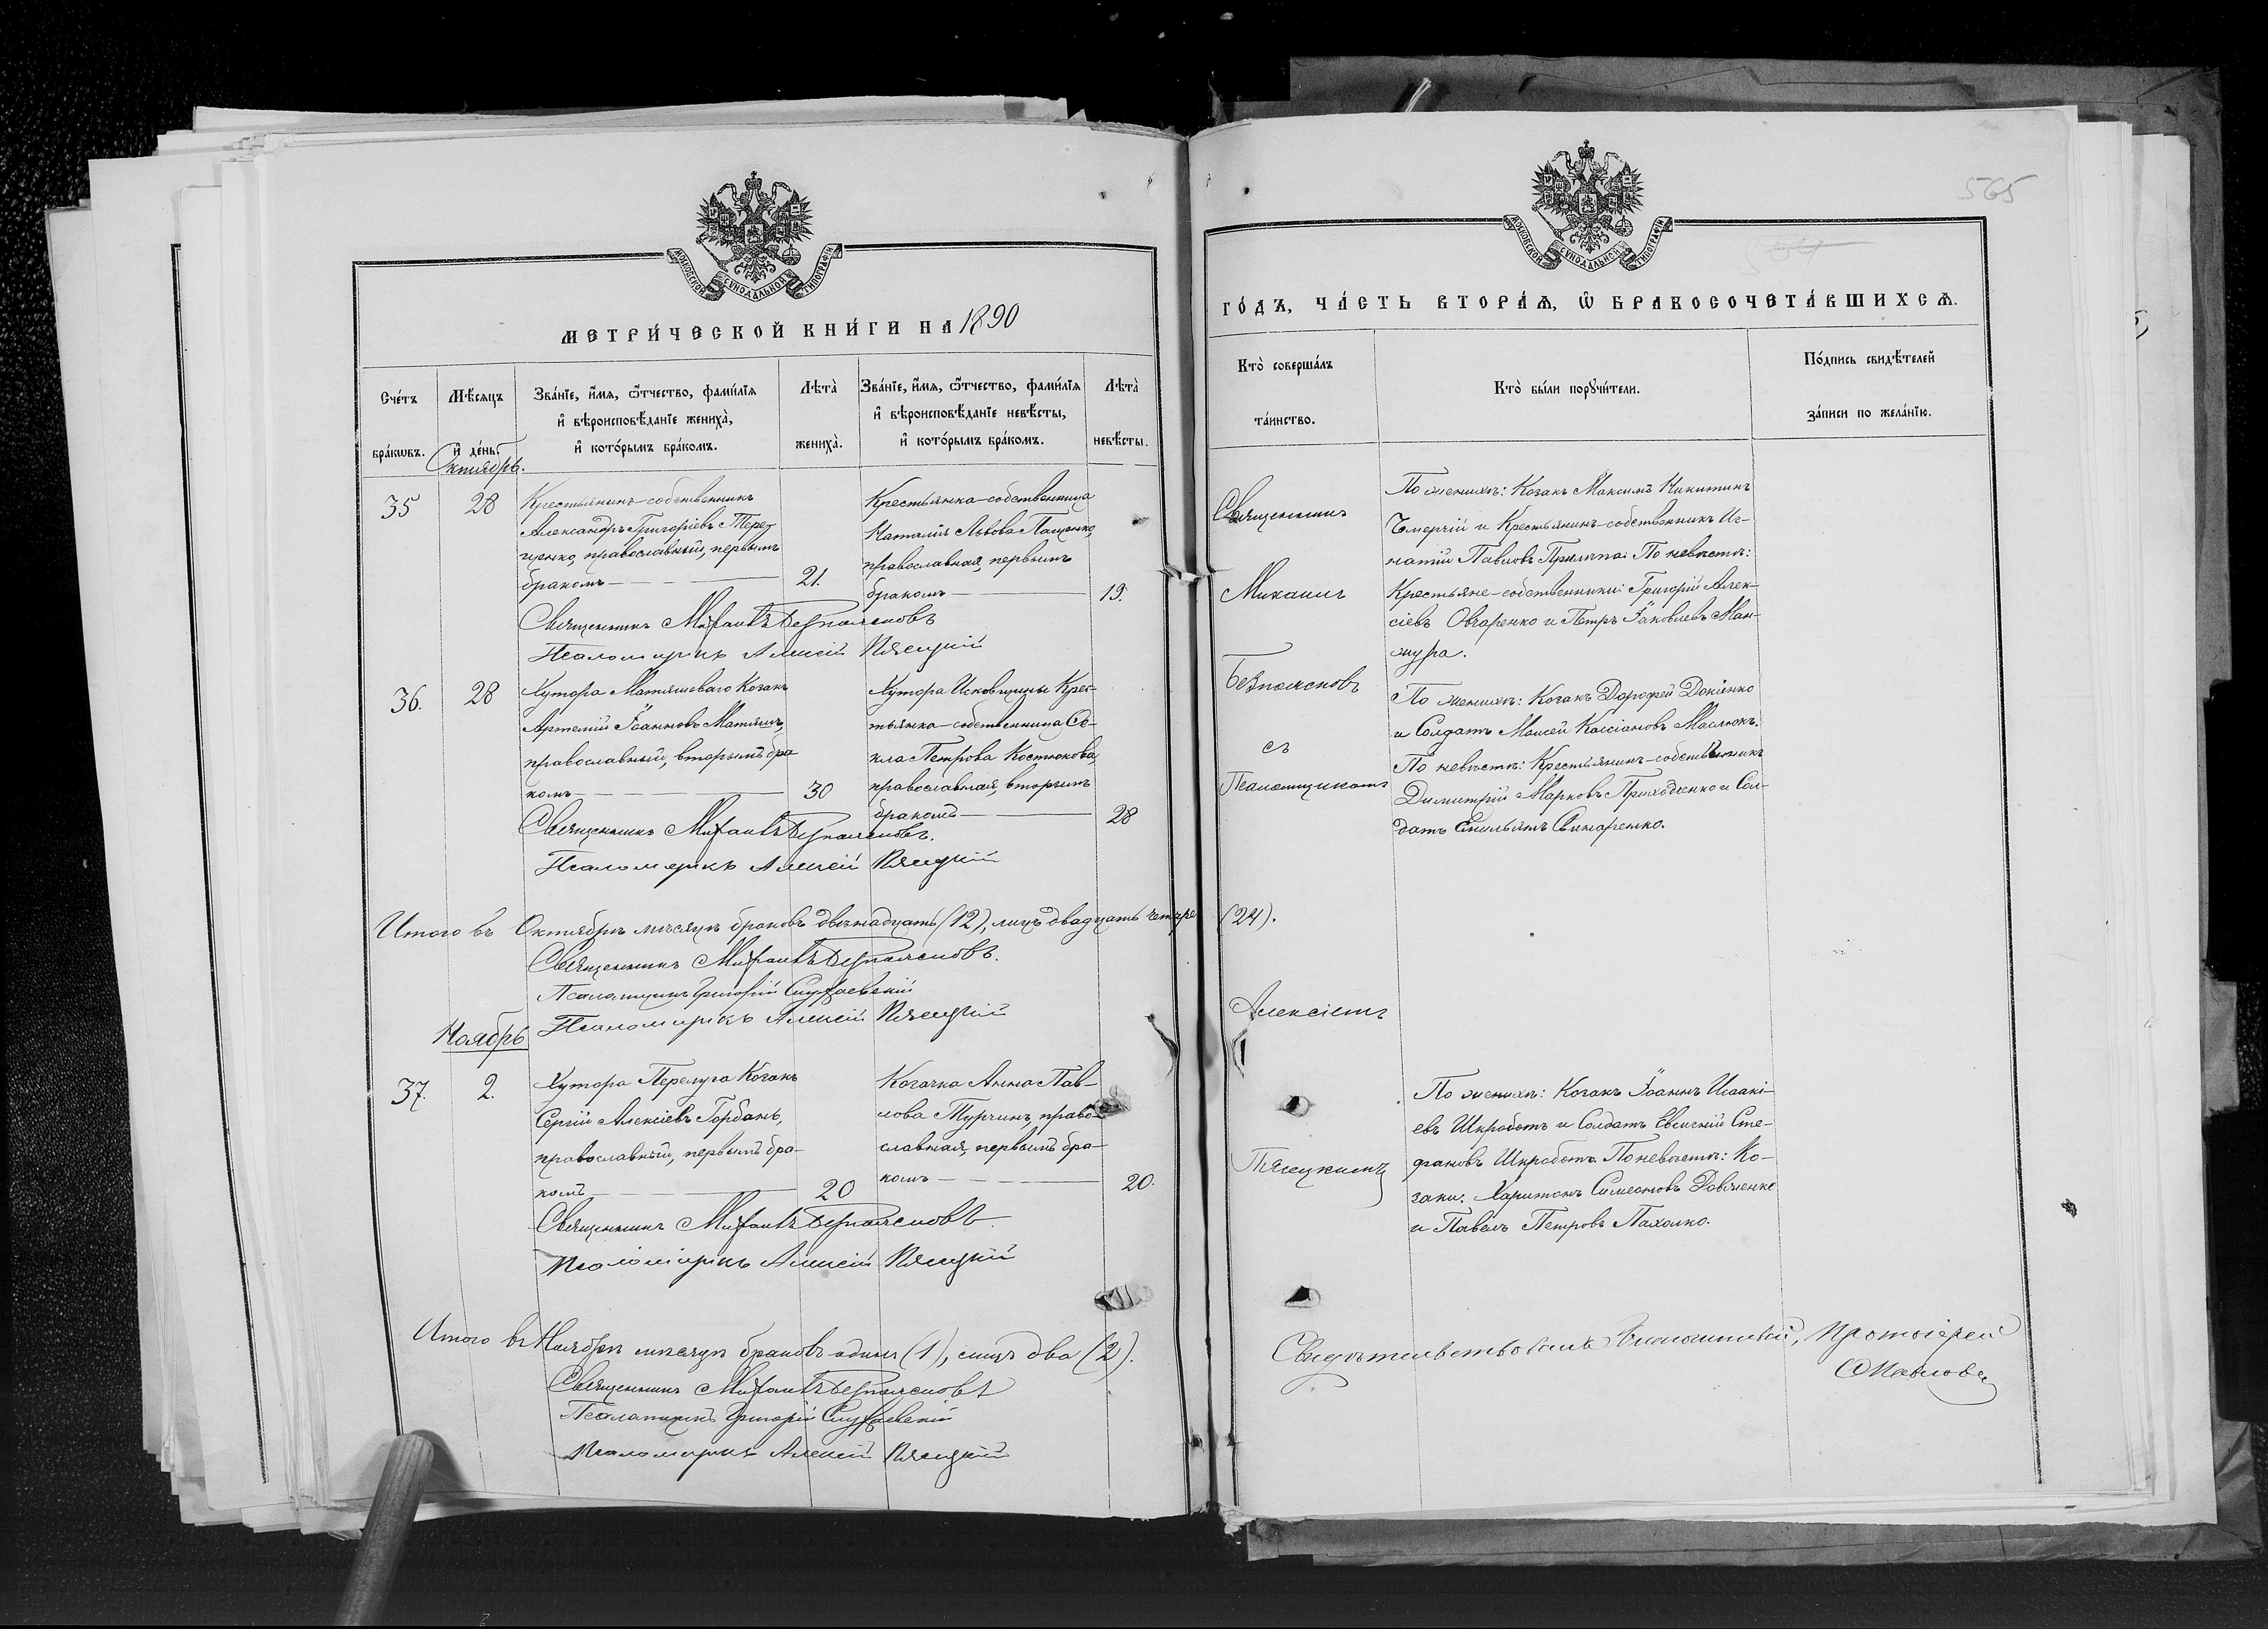 МОСКОВСКОЙ СѴНОДАЛЬНОЙ ТИПОГРАФІИ
МЕТРИ́ЧЕСКОЙ КНИ́ГИ НА 1890
Сче́тъ бра́кѡвъ.
Мѣ́сяцъ и҆ де́нь.
Зва́нїе, и҆́мя, ѻ҆́тчество, фами́лїя
и҆ вѣроисповѣ́данїе жениха̀,
и҆ кото́рымъ бра́комъ.
Лѣта̀ жениха̀.
Зва́нїе, и҆́мя, ѻ҆́тчество, фами́лїя
и҆ вѣроисповѣ́данїе невѣ́сты,
и҆ кото́рымъ бра́комъ.
Лѣта̀ невѣ́сты.
Октябрь.
35
28
Крестьянинъ-собственникъ
Александръ Григоріевъ Тере-
щенко, православный, первымъ
бракомъ
21.
Крестьянка-собственница
Наталія Львова Пащенко,
православная, первымъ
бракомъ
19.
Священникъ Михаилъ Безпоясновъ
Псаломщикъ Алексій
36.
28
Хутора Матяшеваго Козакъ
Артемій Іоанновъ Матяшъ,
православный, вторымъ бра
комъ
30
Хутора Исковщины Крес-
тьянка-собственница Ѳе-
кла Петрова Костюкова,
православная, вторымъ
бракомъ
28
Священникъ Михаилъ Безпоясновъ.
Псаломщикъ Алексій
Итого въ Октябрѣ мѣсяцѣ браковъ двѣнадцать (12), лицъ двадцать четыре (24).
Священникъ Михаилъ Безпоясновъ.
Псаломщикъ Григорій
Псаломщикъ Алексій
Ноябрь
37.
2.
Хутора Перелуга Козакъ
Сергій Алексіевъ Горбань,
православный, первымъ бра-
комъ
20
Козачка Анна Пав-
лова Турчинъ, право-
славная, первымъ бра-
комъ
20.
Священникъ Михаилъ Безпоясновъ.
Псаломщикъ Алексій
Итого въ Ноябрѣ мѣсяцѣ браковъ одинъ (1), лицъ два (2).
Священникъ Михаилъ Безпоясновъ
Псаломщикъ Григорій
Псаломщикъ Алексій
565
МОСКОВСКОЙ СѴНОДАЛЬНОЙ ТИПОГРАФІИ
ГО́ДЪ, ЧА́СТЬ ВТОРА́Ѧ, Ѽ БРАКОСОЧЕТА́ВШИХСѦ.
Кто̀ соверша́лъ
та́инство.
Кто̀ бы́ли порꙋчи́тели.
По́дпись свидѣ́телей
за́писи по жела́нїю.
Священникъ
Михаилъ
Безпоясновъ
съ
Псаломщикомъ
Алексіемъ
По женихѣ: Козакъ Максимъ Никитинъ
Чмерчій и Крестьянинъ-собственникъ Иг-
натій Павловъ По невѣстѣ:
Крестьяне-собственники: Григорій Алек-
сіевъ Овчаренко и Петръ Іаковлевъ Ман-
жура.
По женихѣ: Козакъ Дорофей Докіенко
и Солдатъ Моисей Кассіановъ Маслюкъ.
По невѣстѣ: Крестьянинъ-собственникъ
Димитрій Марковъ Приходченко и Сол-
датъ Емельянъ Свинаренко.
По женихѣ: Козакъ Іоаннъ Исаакі-
евъ Шкроботъ и Солдатъ Евсигній Сте-
фановъ Шкроботъ. По невѣстѣ: Ко-
заки: Харитонъ Симеоновъ Довженко
и Павелъ Петровъ Пахолко.
Свидѣтельствовалъ Благочинный, Протоіерей
Павловъ